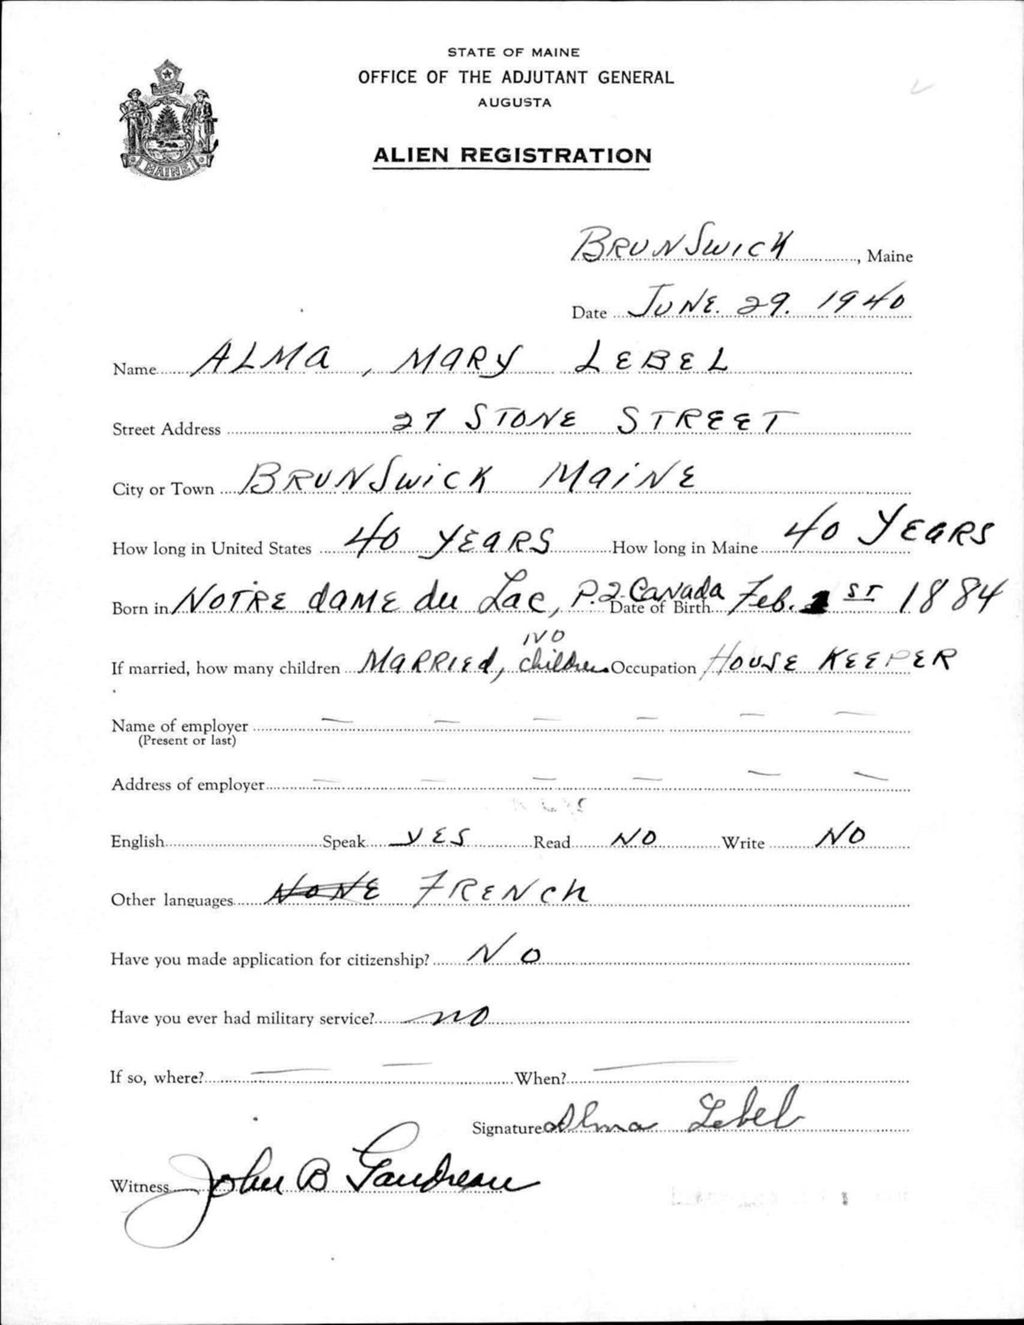 STATE OF MAINE
OFFICE OF THE ADJUTANT GENERAL
AUGUSTA
MAINE
ALIEN REGISTRATION
BRUNSWICK, Maine
Date JUNE. 29. 1940
Name ALMA, MARY LEBEL
Street Address 27 STONE STREET
City or Town BRUNSWICK MAINE
How long in United States 40 YEARS How long in Maine 40 YEARS
Born in NOTRE dAME du Lac, P.Q. CaNada Date of Birth Feb. 1 ST 1884
NO
If married, how many children MARRIEd, children Occupation HOUSE KEEPER
Name of employer — — — — — —
(Present or last)
Address of employer — — — — — —
English Speak YES Read NO Write NO
Other languages NONE FRENCh
Have you made application for citizenship? NO
Have you ever had military service? no
If so, where? — — When? —
Signature Alma Lebel
Witness John B Gaudreau